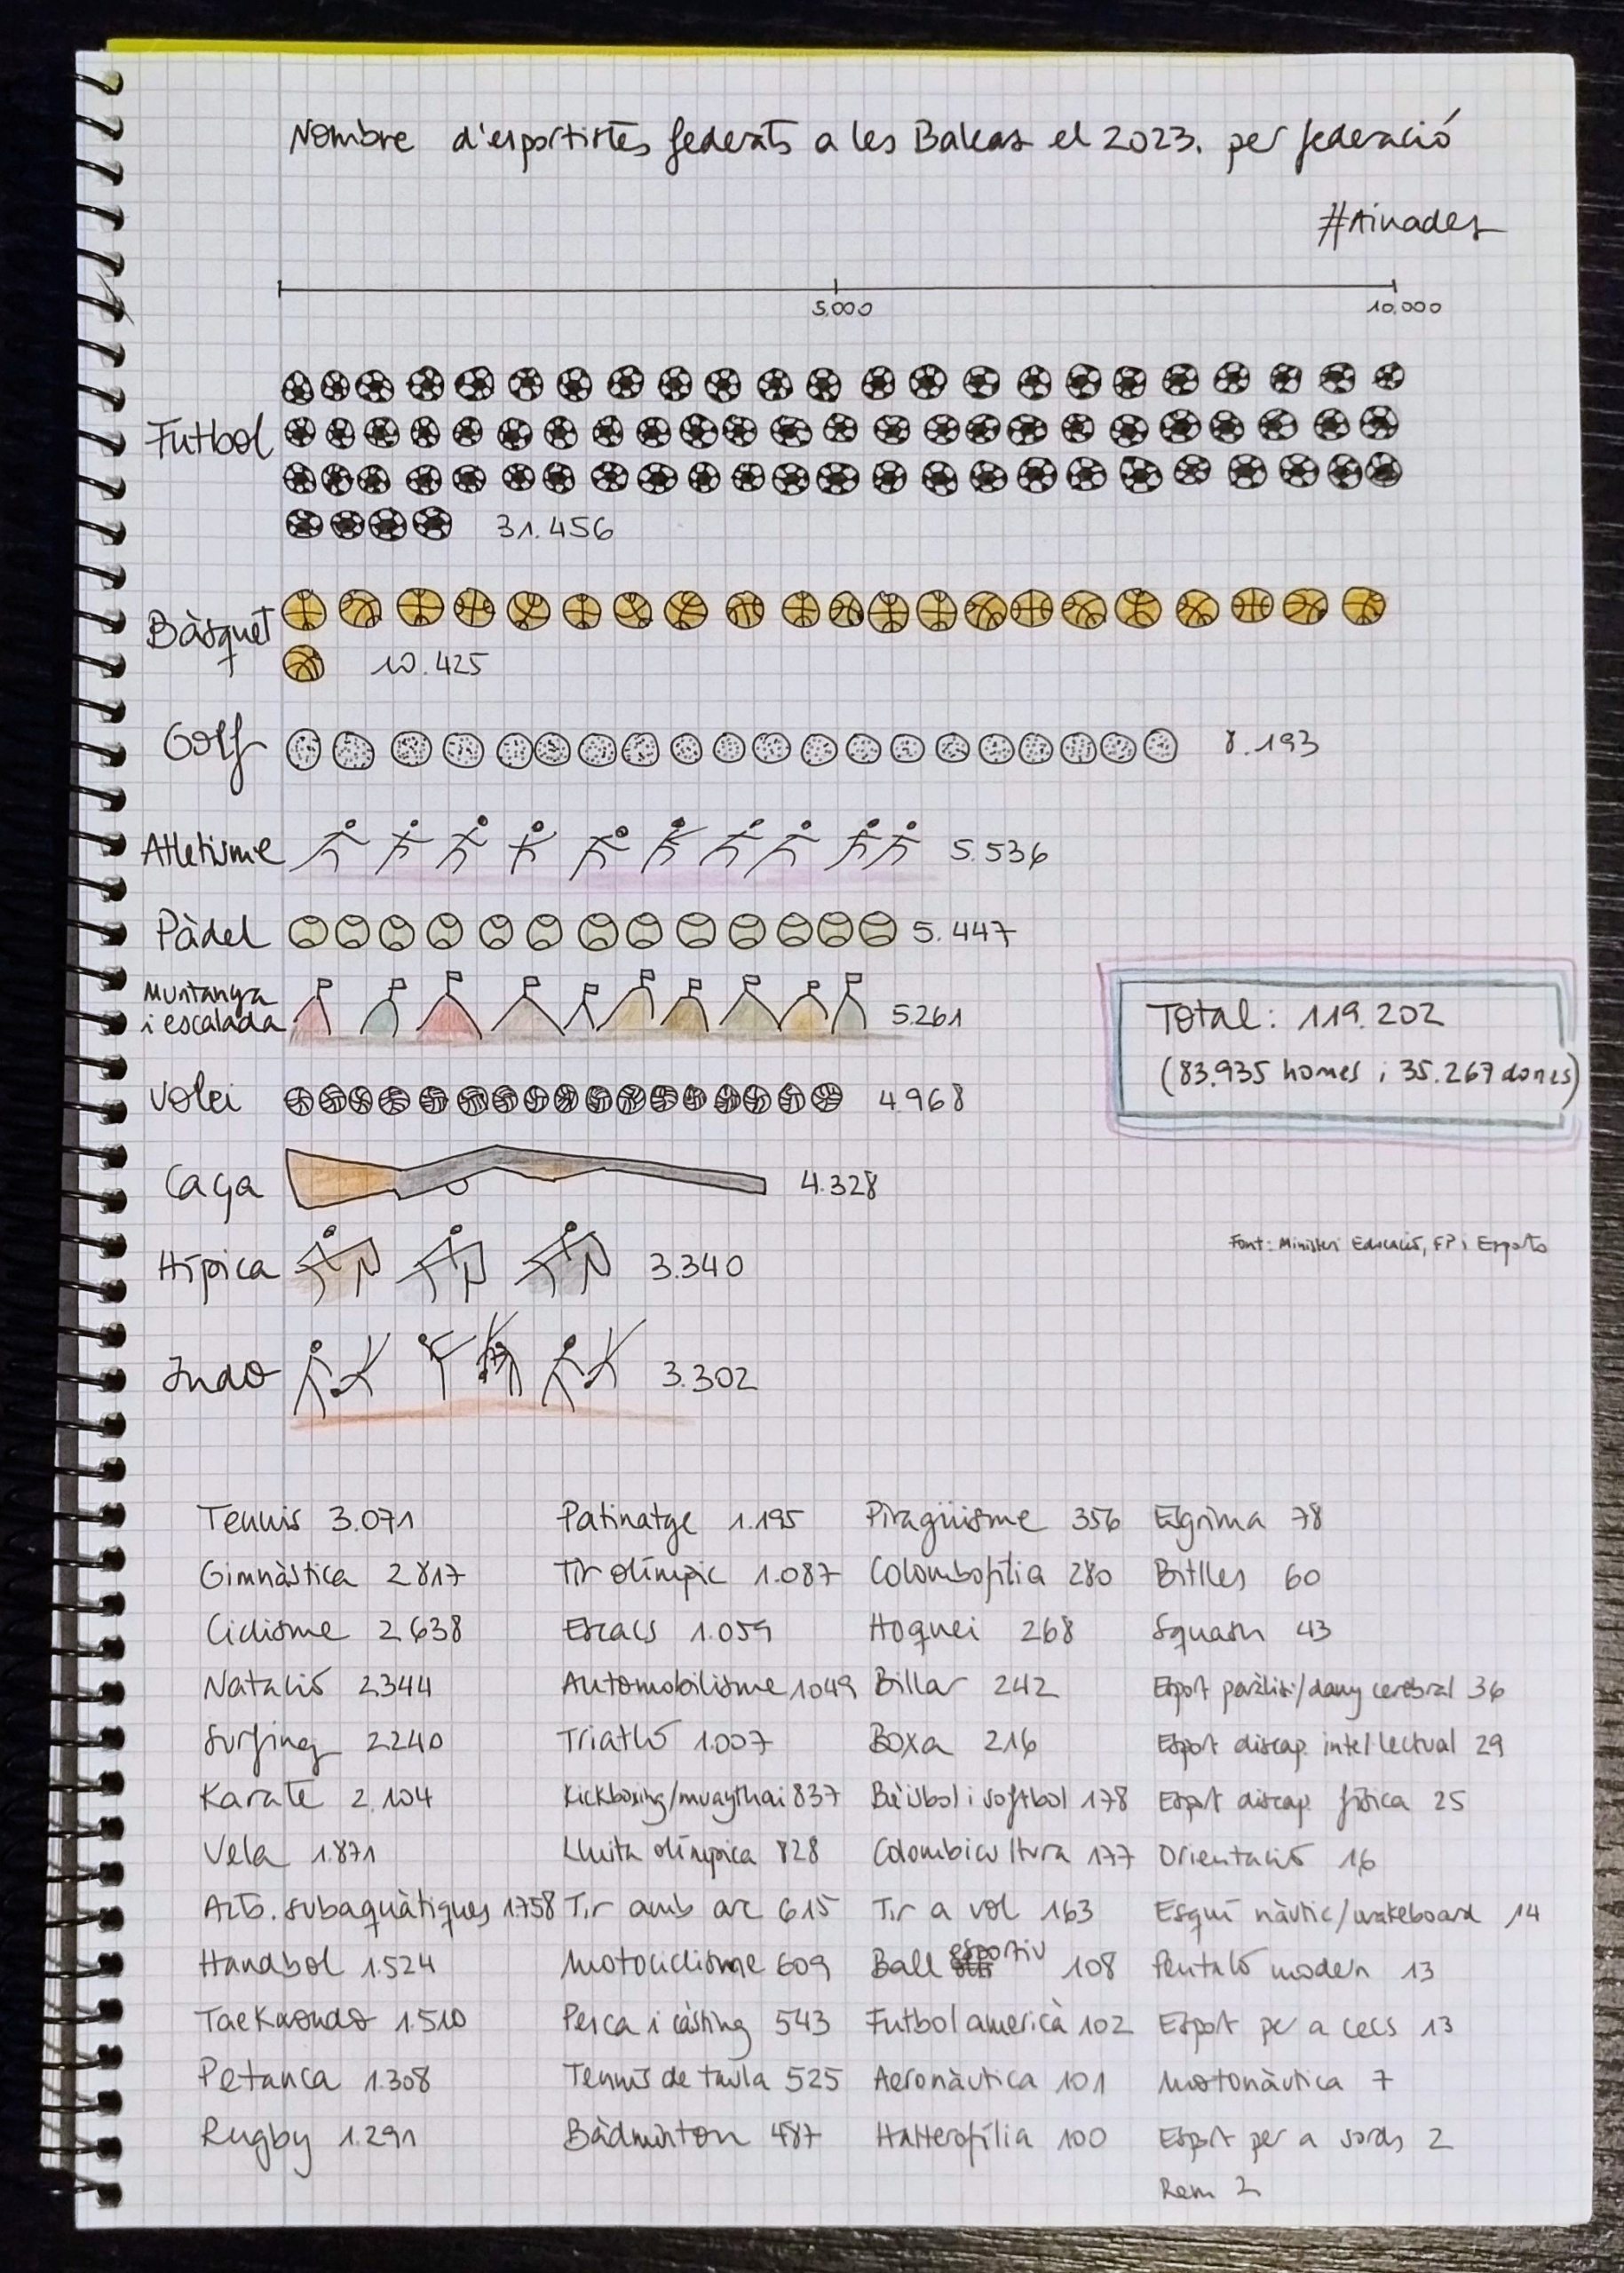 Nombre d'esportistes federats a les Balears el 2023, per federació
#Ainades
5.000 10.000
Futbol 31.456
Bàsquet 10.425
Golf 8.193
Atletisme 5.536
Pàdel 5.447
Muntanya
i escalada 5.261
Total: 119.202
(83.935 homes i 35.267 dones)
Volei 4.968
Caça 4.328
Font: Ministeri Educació, FP i Esports
Hípica 3.340
Judo 3.302
Tennis 3.071
Gimnàstica 2817
Ciclisme 2638
Natació 2344
Surfing 2240
Karate 2.104
Vela 1.871
Actv. subaquàtiques 1758
Handbol 1.524
Taekwondo 1.510
Petanca 1.308
Rugby 1.291
Patinatge 1.195
Tir olímpic 1.087
Escacs 1.059
Automobilisme 1049
Triatló 1.007
Kickboxing/muaythai 837
Lluita olímpica 828
Tir amb arc 615
Motociclisme 609
Pesca i càsting 543
Tennis de taula 525
Bàdminton 487
Piragüisme 356
Colombofília 280
Hoquei 268
Billar 242
Boxa 216
Bèisbol i softbol 178
Colombicultura 177
Tir a vol 163
Ball esportiu 108
Futbol americà 102
Aeronàutica 101
Halterofília 100
Esgrima 78
Bitlles 60
Squash 43
Esport paràlisi/dany cerebral 36
Esport discap. intel·lectual 29
Esport discap. física 25
Orientació 16
Esquí nàutic/wakeboard 14
Pentaló modern 13
Esport per a cecs 13
Motonàutica 7
Esport per a sords 2
Rem 2